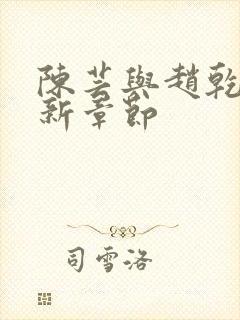 陳芸與趙乾
新章節
司雪洛